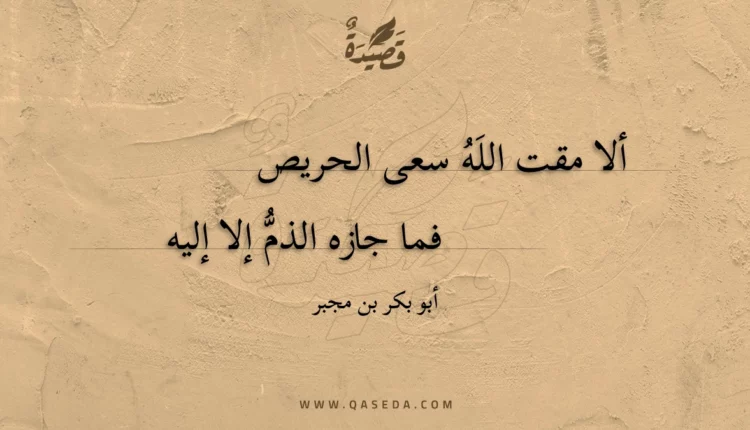 قَصِيْدَةٌ
ألا مقت اللَهُ سعى الحريص
فما جازه الذمُّ إلا إليه
أبو بكر بن مجبر
WWW.QASEDA.COM